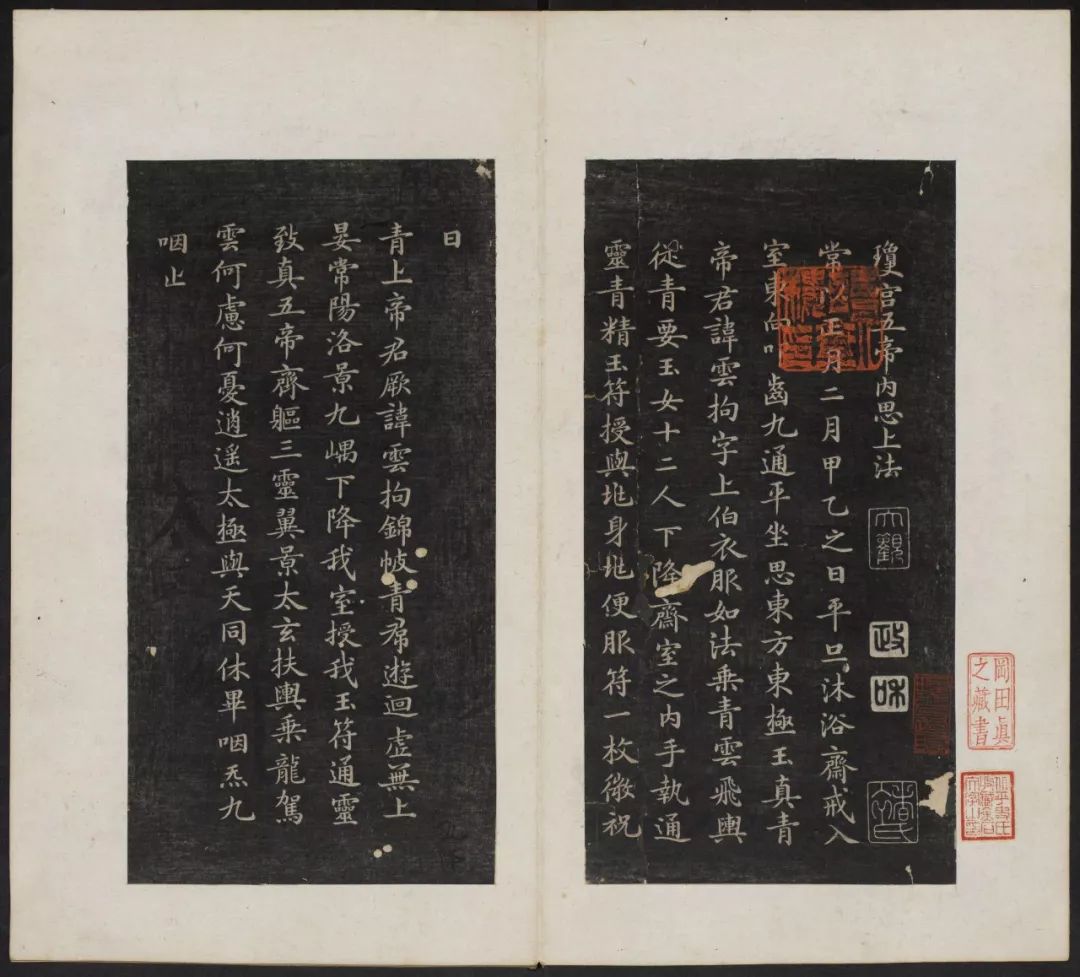 瓊宫五帝内思上法
常以正月二月甲乙之日平旦沐浴齋戒入
室東向叩齒九通平坐思東方東極玉真青
帝君諱雲拘字上伯衣服如法乘青雲飛輿
從青要玉女十二人下降齋室之内手執通
靈青精玉符授與地身地便服符一枚微祝
曰
青上帝君厥諱雲拘錦帔青帬遊迴虚無上
晏常陽洛景九嵎下降我室授我玉符通靈
致真五帝齊軀三靈翼景太玄扶輿乘龍駕
雲何慮何憂逍遥太極與天同休畢咽炁九
咽止
大觀
政和
岡田真
之藏書